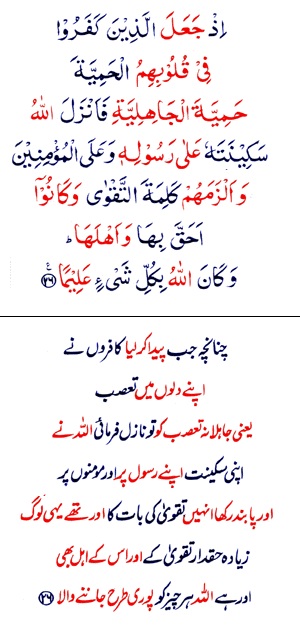 اِذْ جَعَلَ الَّذِيْنَ كَفَرُوْا
فِيْ قُلُوْبِهِمُ الْحَمِيَّةَ
حَمِيَّةَ الْجَاهِلِيَّةِ فَاَنْزَلَ اللّٰهُ
سَكِيْنَتَهٗ عَلٰى رَسُوْلِهٖ وَعَلَى الْمُؤْمِنِيْنَ
وَاَلْزَمَهُمْ كَلِمَةَ التَّقْوٰى وَكَانُوْٓا
اَحَقَّ بِهَا وَاَهْلَهَا ؕ
وَكَانَ اللّٰهُ بِكُلِّ شَيْءٍ عَلِيْمًا ﴿۲۶﴾
چنانچہ جب پیدا کر لیا کافروں نے
اپنے دلوں میں تعصب
یعنی جاہلانہ تعصب کو تو نازل فرمائی اللہ نے
اپنی سکینت اپنے رسول پر اور مومنوں پر
اور پابند رکھا انہیں تقویٰ کی بات کا اور تھے یہی لوگ
زیادہ حقدار تقویٰ کے اور اس کے اہل بھی
اور ہے اللہ ہر چیز کو پوری طرح جاننے والا ﴿۲۶﴾